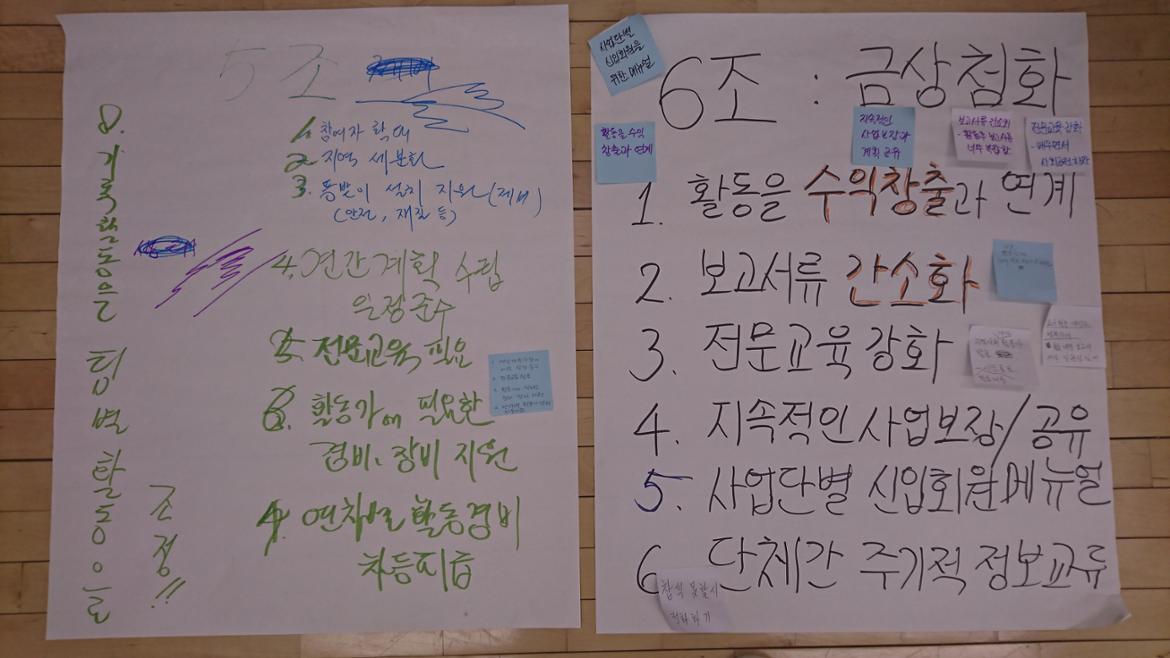 5조
1. 참여자 확대
2. 지역 세분화
3. 통발이 설치 지원(제비)
(안전, 재질 등)
4. 연간계획 수립
일정준수
5. 전문교육 필요
6. 활동가에 필요한
경비, 장비 지원
7. 연차별 활동경비
차등지급
8. 기록활동은 팀별 활동으로
조정!!
사업단별
신입회원을
위한 메뉴얼
6조 : 금상첨화
활동을 수익
창출과 연계
지속적인
사업보장과
계획 공유
보고서류 간소화
너무 복잡함
전문교육 강화
1. 활동을 수익창출과 연계
2. 보고서류 간소화
3. 전문교육 강화
4. 지속적인 사업보장/공유
5. 사업단별 신입회원메뉴얼
6. 단체간 주기적 정보교류
참석 못할시